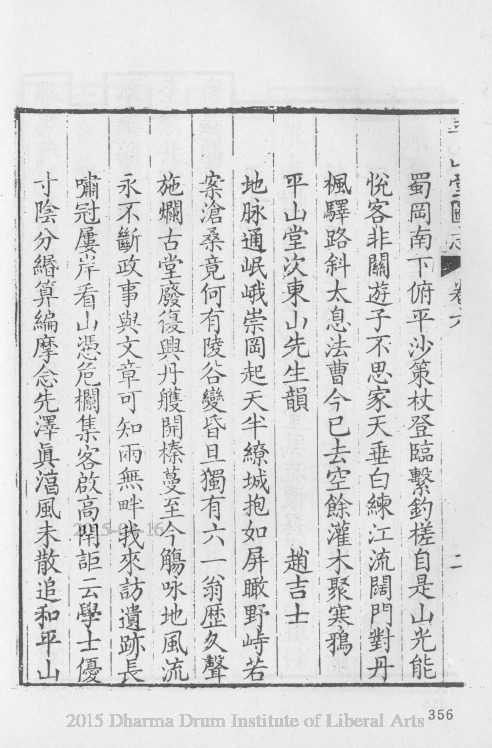 平山堂圖志 卷六 二
蜀岡南下俯平沙策杖登臨繫釣槎自是山光能
悅客非關遊子不思家天垂白練江流闊門對丹
楓驛路斜太息法曹今已去空餘灌木聚寒鴉
平山堂次東山先生韻 趙吉士
地脉通岷峨崇岡起天半繚城抱如屏瞰野峙若
案滄桑竟何有陵谷變昏旦獨有六一翁歷久聲
施爛古堂廢復興丹雘開榛蔓至今觴咏地風流
永不斷政事與文章可知兩無畔我來訪遺跡長
嘯冠屢岸看山憑危欄集客啟高閈詎云學士優
寸陰分緡算編摩念先澤眞㵝風未散追和平山
2015-01-16
2015 Dharma Drum Institute of Liberal Arts
356